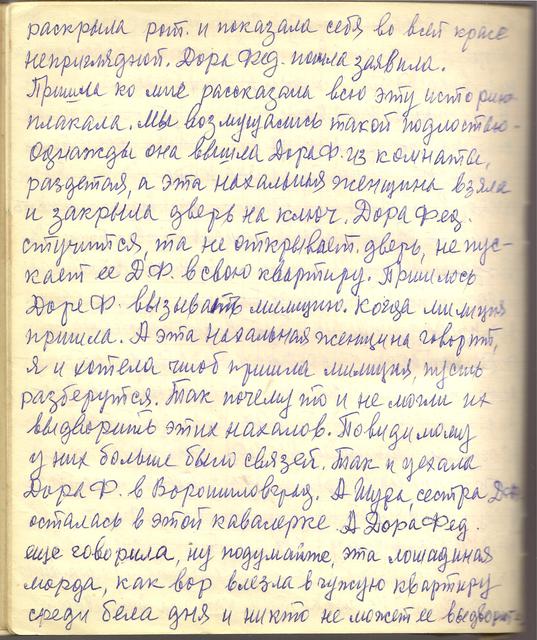 раскрыла рот. и показала себя во всей красе
неприглядной. Дора Фед. пошла заявила.
Пришла ко мне рассказала всю эту историю
плакала. Мы возмущались такой подлостью-
однажды она вышла Дора Ф. из комнаты,
раздетая, а эта нахальная женщина взяла
и закрыла дверь на ключ. Дора Фед.
стучится, та не открывает дверь, не пус-
кает ее Д.Ф. в свою квартиру. Пришлось
Доре Ф. вызывать милицию. Когда милиция
пришла. А эта нахальная женщина говорит,
я и хотела чтоб пришла милиция, пусть
разберутся. Так почему то и не могли их
выдворить этих нахалов. Повидимому
у них больше было связей. Так и уехала
Дора Ф. в Ворошиловград. А Шуда, сестра Д.Ф.
осталась в этой кавалерке. А Дора Фед.
еще говорила, ну подумайте, эта лошадиная
морда, как вор влезла в чужую квартиру
среди бела дня и никто не может ее выдворить